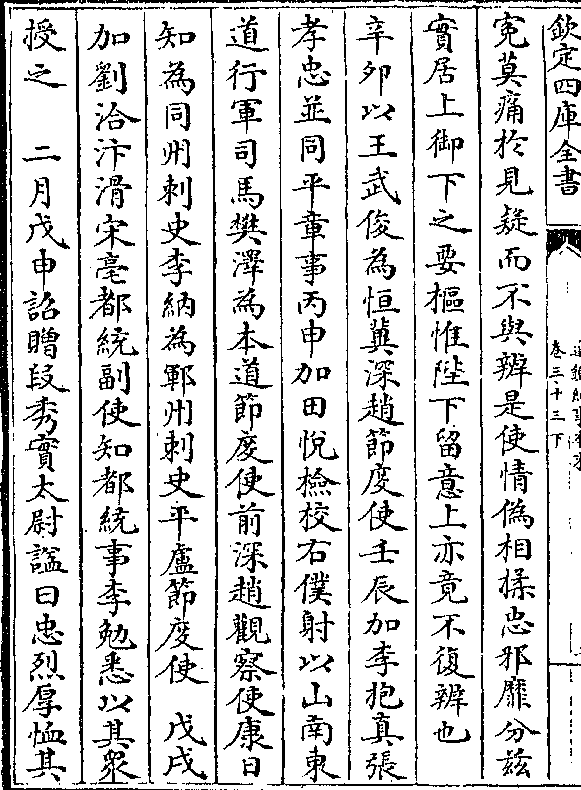 欽定四庫全書
卷三十三下
寃莫痛於見疑而不與辨是使情偽相揉忠邪靡分兹
實居上御下之要樞惟陛下留意上亦竟不復辨也
辛夘以王武俊為恒冀深趙節度使壬辰加李抱真張
孝忠並同平章事丙申加田悅檢校右僕射以山南東
道行軍司馬樊澤為本道節度使前深趙觀察使康日
知為同州刺史李納為鄆州刺史平盧節度使 戊戌
加劉洽汴滑宋亳都統副使知都統事李勉悉以其衆
授之 二月戊申詔贈段秀實太尉諡曰忠烈厚恤其